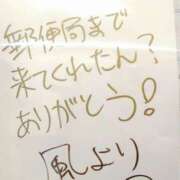 郵便局まで
来てくれたん？
ありがとう！
風より